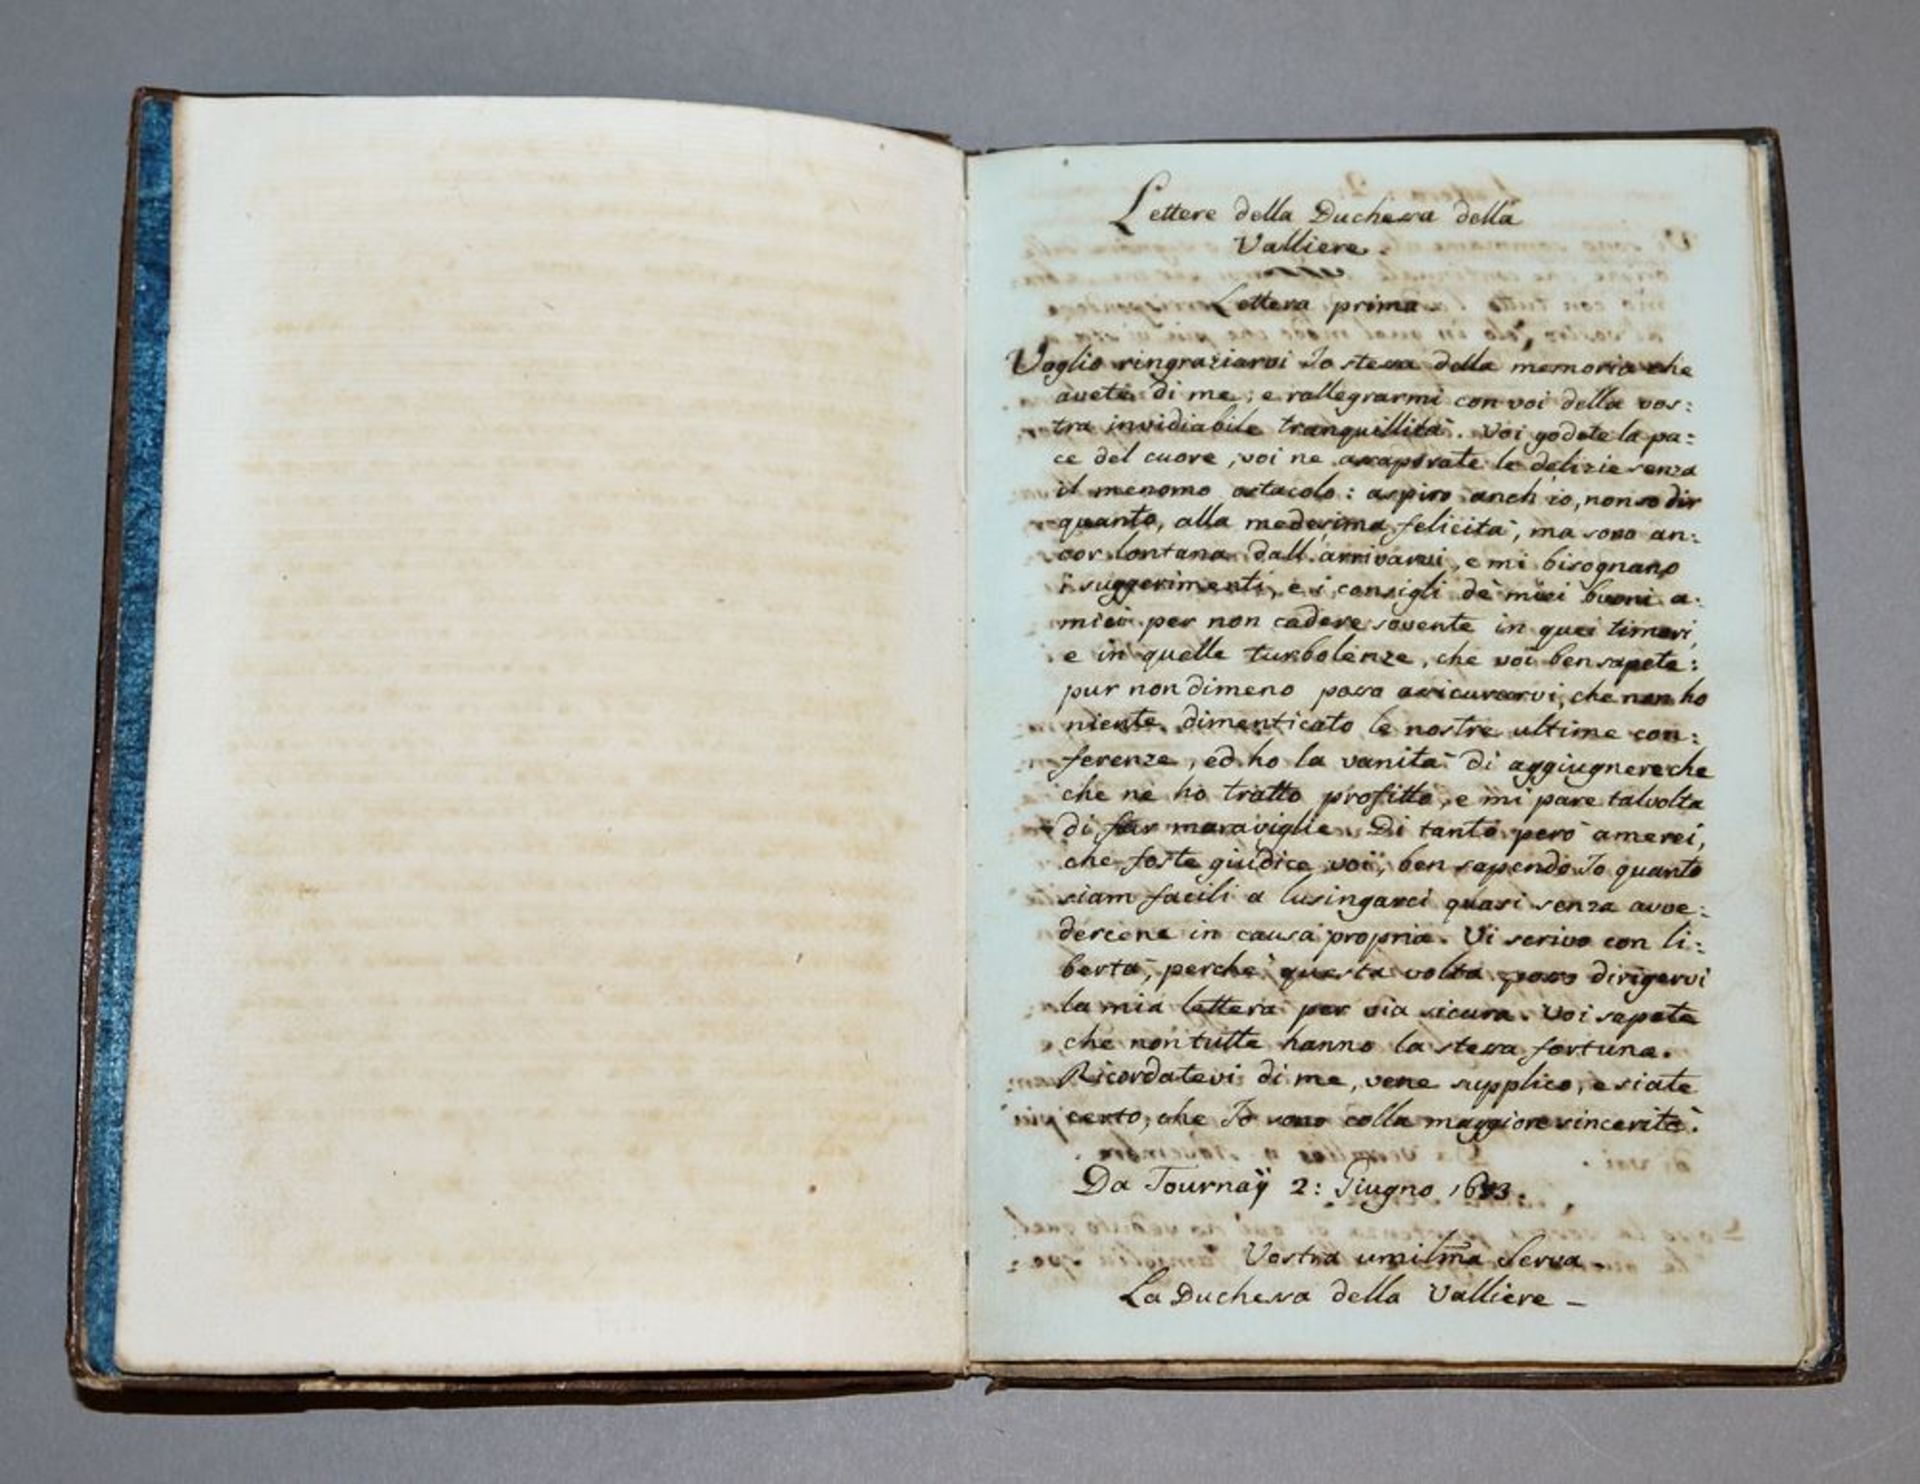 Lettere della Duchessa della
Valliere.
Lettera prima
Voglio ringraziarvi Io stessa della memoria che
avete di me; e rallegrarmi con voi della vos:
tra invidiabile tranquillità. Voi godete la pa:
ce del cuore, voi ne assaporate le delizie senza
il menomo ostacolo: aspiro anch'io, non so dir
quanto, alla medesima felicità, ma sono an:
cor lontana dall'arrivarvi, e mi bisognano
i suggerimenti, e i consigli de' miei buoni a:
mici per non cadere sovente in quei timori,
e in quelle turbolenze, che voi ben sapete:
pur non dimeno possa assicurarvi, che non ho
niente dimenticato le nostre ultime con:
ferenze, ed ho la vanità di aggiugnere che
che ne ho tratto profitto, e mi pare talvolta
di far maraviglie. Di tanto però amerei,
che foste giudice voi, ben sapendo Io quanto
siam facili a lusingarci quasi senza avve:
dercene in causa propria. Vi scrivo con li:
bertà, perchè questa volta posso dirigervi
la mia lettera per via sicura. Voi sapete
che non tutte hanno la stessa fortuna.
Ricordatevi di me, vene supplico, e siate
certo, che Io sono colla maggiore sincerità.
Da Tournaÿ 2: Giugno
Vostra umilma Serva
La Duchessa della Valliere –